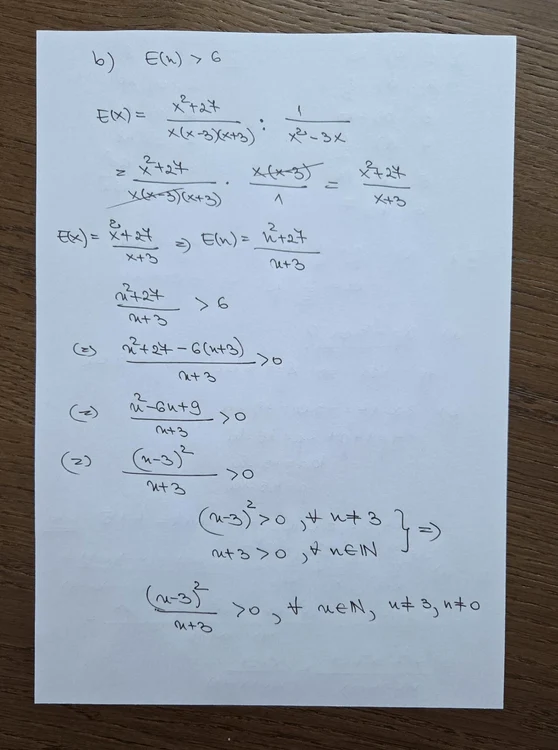 b) E(n) > 6
E(x) = x²+27 / x(x-3)(x+3) : 1 / x²-3x
= x²+27 / x(x-3)(x+3) · x(x-3) / 1 = x²+27 / x+3
E(x) = x²+27 / x+3 => E(n) = n²+27 / n+3
n²+27 / n+3 > 6
(=) n²+27-6(n+3) / n+3 > 0
(=) n²-6n+9 / n+3 > 0
(=) (n-3)² / n+3 > 0
(n-3)² > 0, ∀ n≠3 } =>
n+3 > 0, ∀ n∈ℕ
(n-3)² / n+3 > 0, ∀ n∈ℕ, n≠3, n≠0